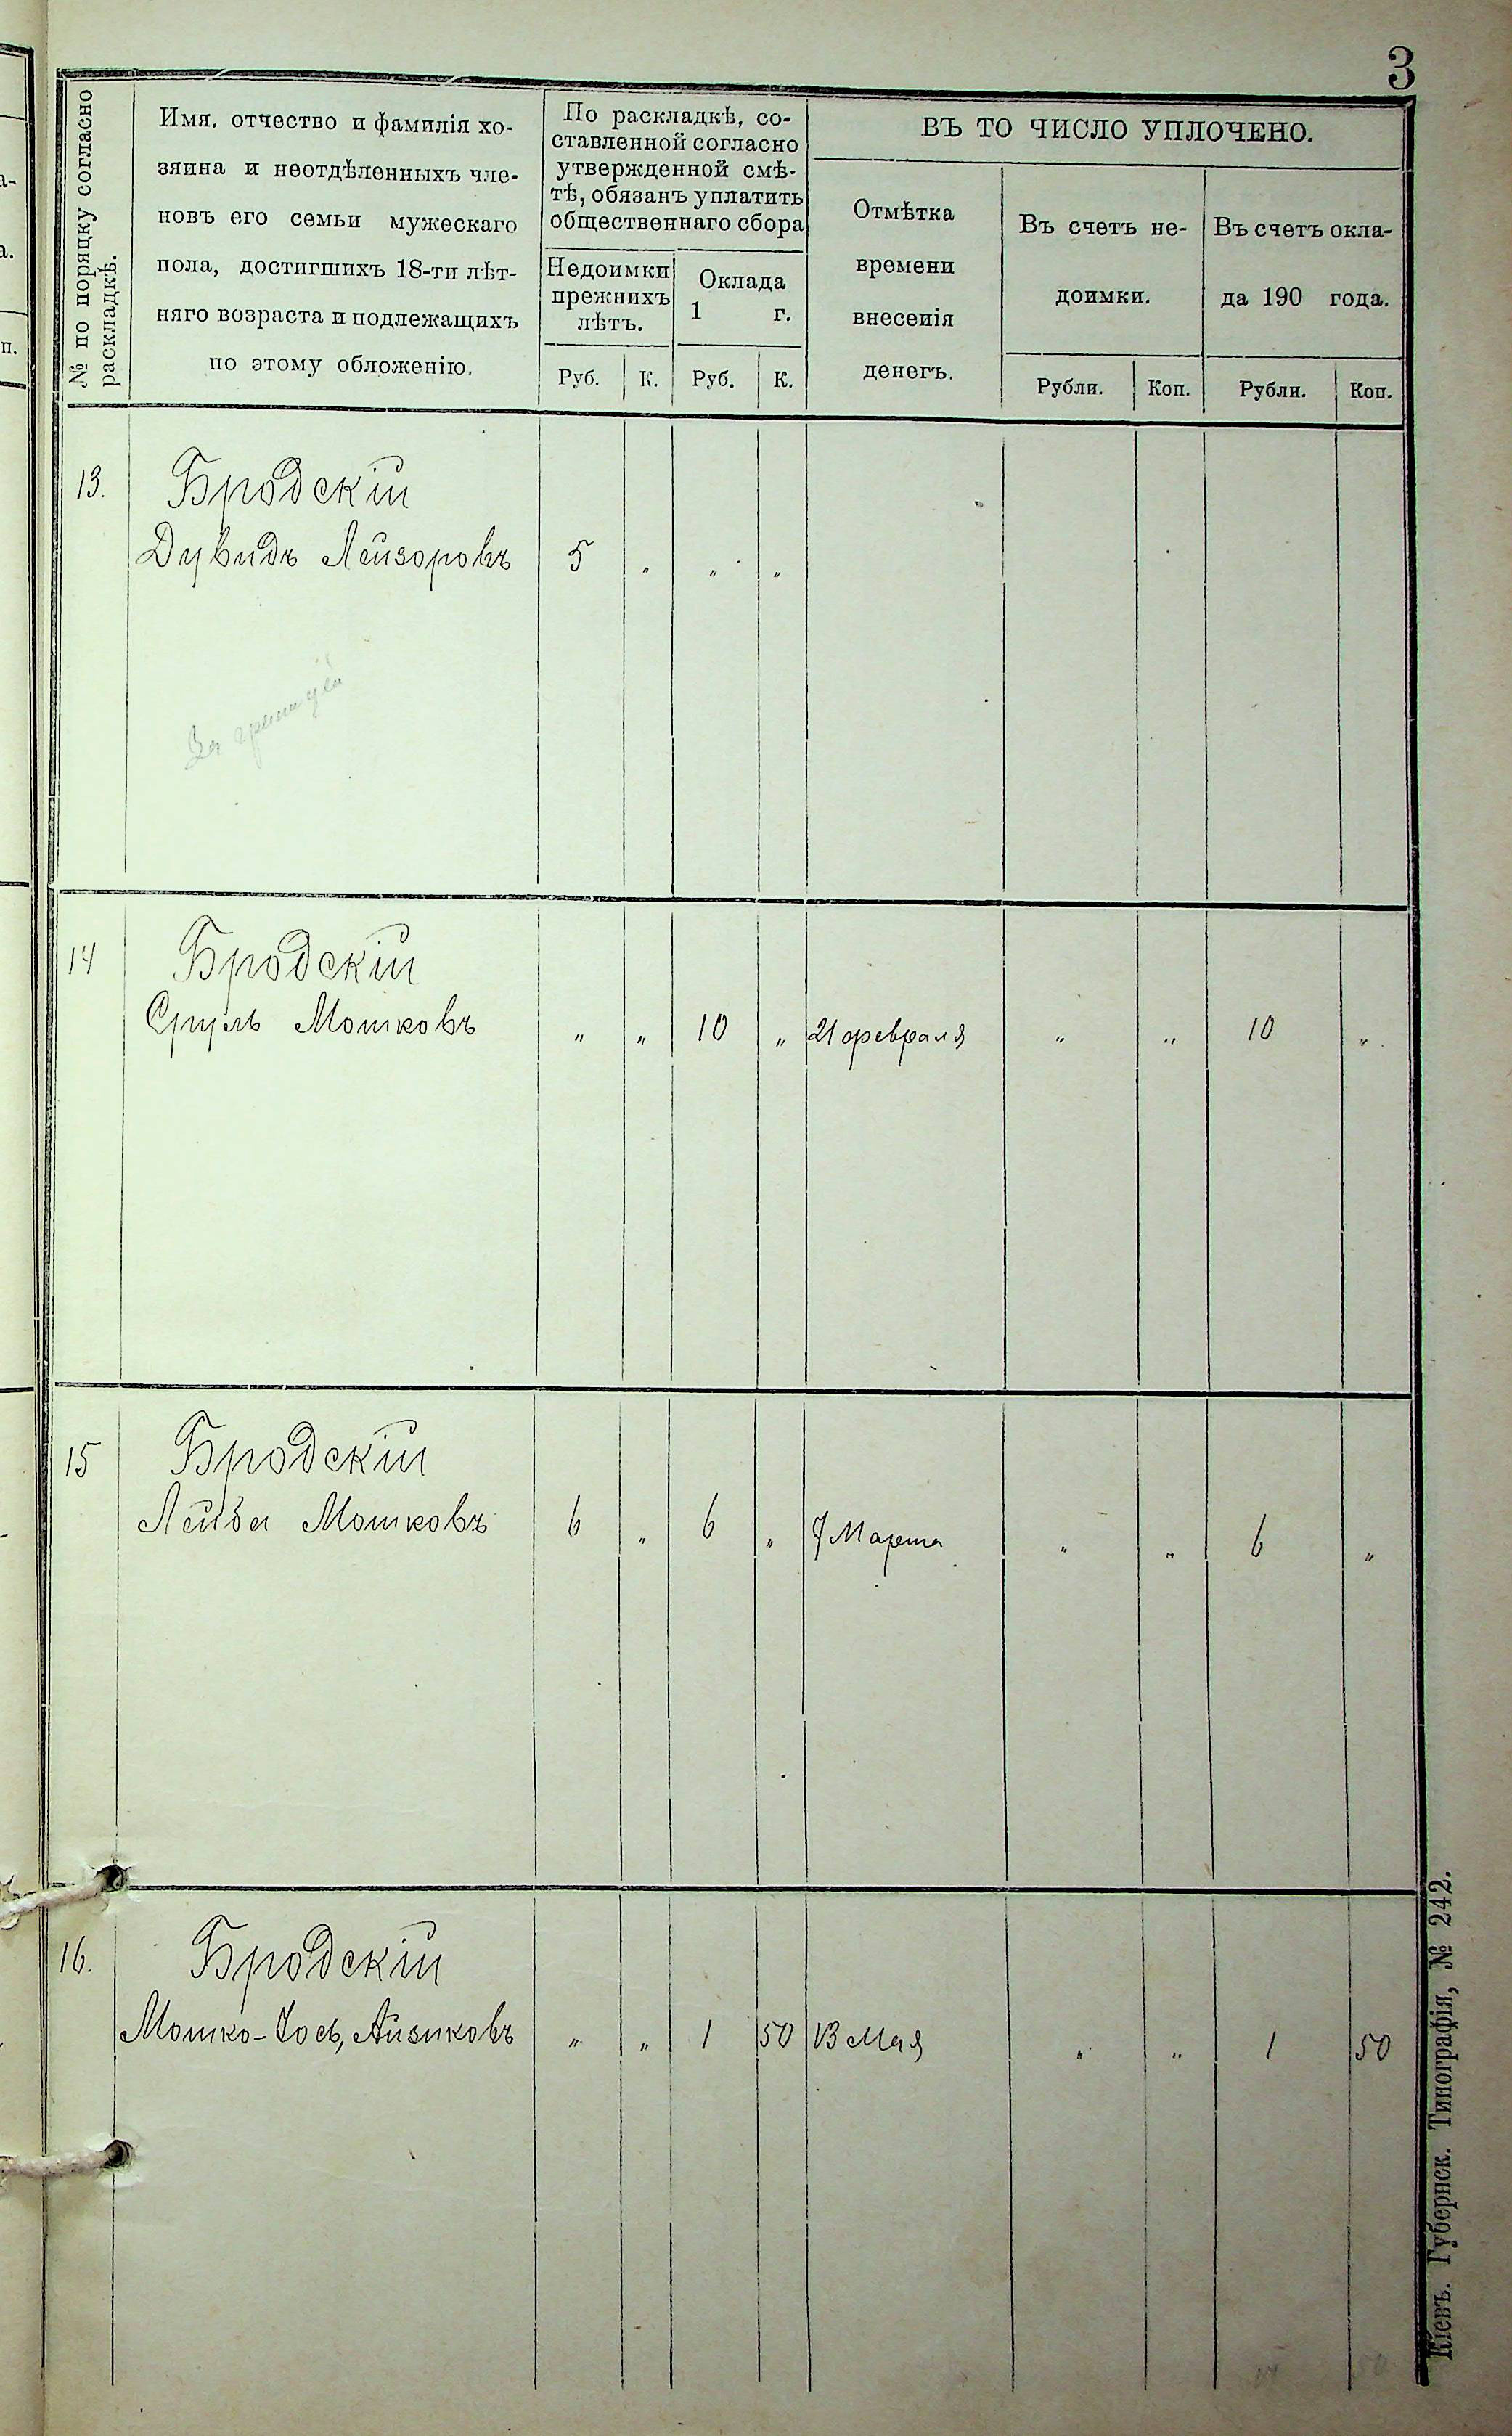 3
№ по порядку согласно
раскладкѣ.
Имя, отчество и фамилія хо-
зяина и неотдѣленныхъ чле-
новъ его семьи мужескаго
пола, достигшихъ 18-ти лѣт-
няго возраста и подлежащихъ
по этому обложенію.
По раскладкѣ, со-
ставленной согласно
утвержденной смѣ-
тѣ, обязанъ уплатить
общественнаго сбора
Недоимки
прежнихъ
лѣтъ.
Оклада
1 г.
Руб. К. Руб. К.
ВЪ ТО ЧИСЛО УПЛОЧЕНО.
Отмѣтка
времени
внесенія
денегъ.
Въ счетъ не-
доимки.
Въ счетъ окла-
да 190 года.
Рубли. Коп. Рубли. Коп.
13. Бродскій
Дувидъ Лейзоровъ 5 „ „ „
14 Бродскій
Сруль Мошковъ „ „ 10 „ 21 февраля „ „ 10 „
15 Бродскій
Лейба Мошковъ 6 „ 6 „ 7 Марта „ „ 6 „
16. Бродскій
Мошко-Іось, Айзиковъ „ „ 1 50 13 Мая „ „ 1 50
Кіевъ. Губернск. Типографія, № 242.